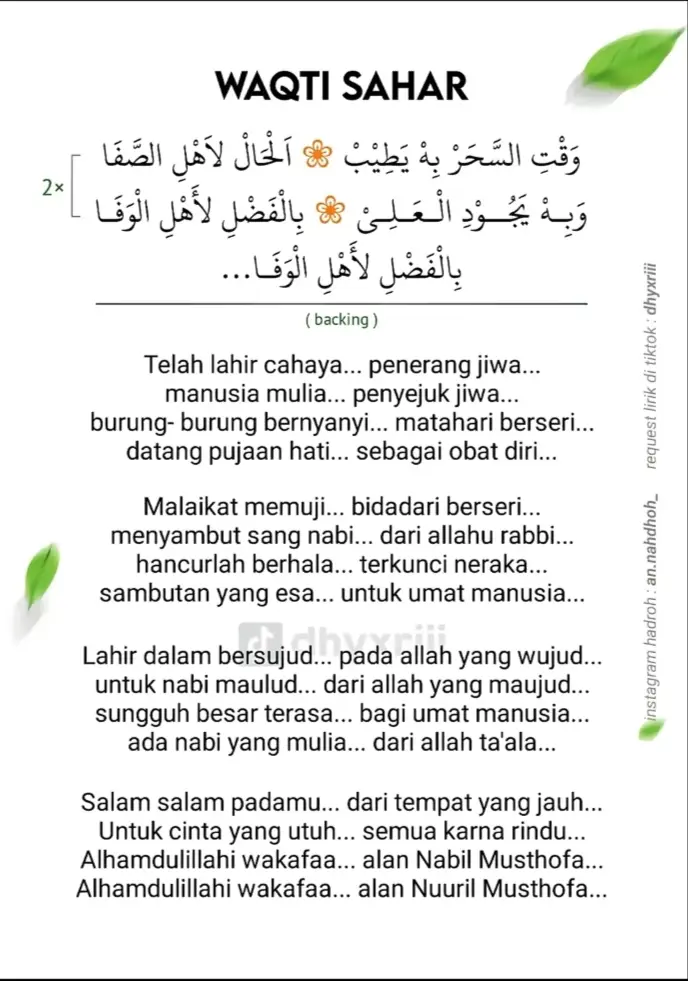 WAQTI SAHAR
وَقْتِ السَّحَرْ بِهْ يَطِيْبْ اَلْحَالْ لاَهْلِ الصَّفَا
2×
وَبِهْ يَجُـــوْدِ الْـعَـلِـىْ بِالْفَضْلِ لأَهْلِ الْوَفَــا
بِالْفَضْلِ لأَهْلِ الْوَفَــا...
( backing )
Telah lahir cahaya... penerang jiwa...
manusia mulia... penyejuk jiwa...
burung- burung bernyanyi... matahari berseri...
datang pujaan hati... sebagai obat diri...
Malaikat memuji... bidadari berseri...
menyambut sang nabi... dari allahu rabbi...
hancurlah berhala... terkunci neraka...
sambutan yang esa... untuk umat manusia...
dhyxriii
Lahir dalam bersujud... pada allah yang wujud...
untuk nabi maulud... dari allah yang maujud...
sungguh besar terasa... bagi umat manusia...
ada nabi yang mulia... dari allah ta'ala...
Salam salam padamu... dari tempat yang jauh...
Untuk cinta yang utuh... semua karna rindu...
Alhamdulillahi wakafaa... alan Nabil Musthofa...
Alhamdulillahi wakafaa... alan Nuuril Musthofa...
instagram hadroh : an.nahdhoh_ request lirik di tiktok : dhyxriii